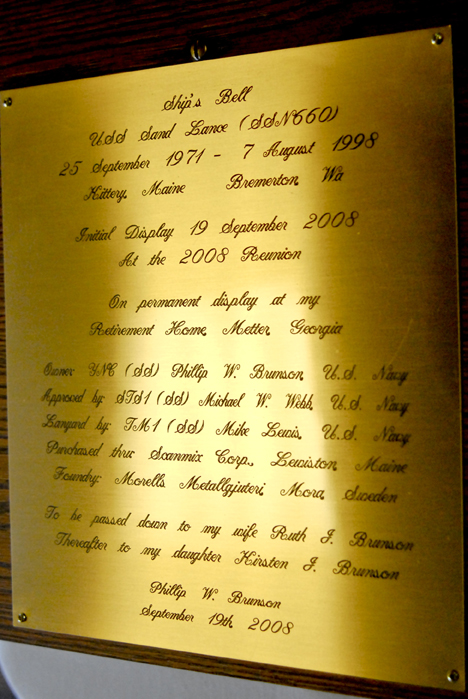 Ship's Bell
USS Sand Lance (SSN660)
25 September 1971 - 7 August 1998
Kittery, Maine Bremerton, Wa
Initial Display 19 September 2008
At the 2008 Reunion
On permanent display at my
Retirement Home, Metter, Georgia
Owner: YNC (SS) Phillip W. Brunson, U.S. Navy
Approved by: STS1 (SS) Michael W. Webb, U.S. Navy
Lanyard by: TM1 (SS) Mike Lewis, U.S. Navy
Purchased thru: Scanmix Corp., Lewiston, Maine
Foundry: Morells Metallgjuteri, Mora, Sweden
To be passed down to my wife Ruth J. Brunson
Thereafter to my daughter Kirsten J. Brunson
Phillip W. Brunson
September 19th, 2008